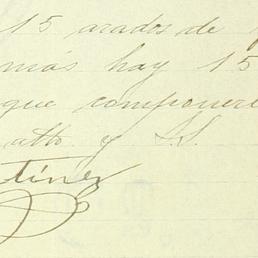 15 arados de
más hay 15
que componer
atto y S.S.
tínez